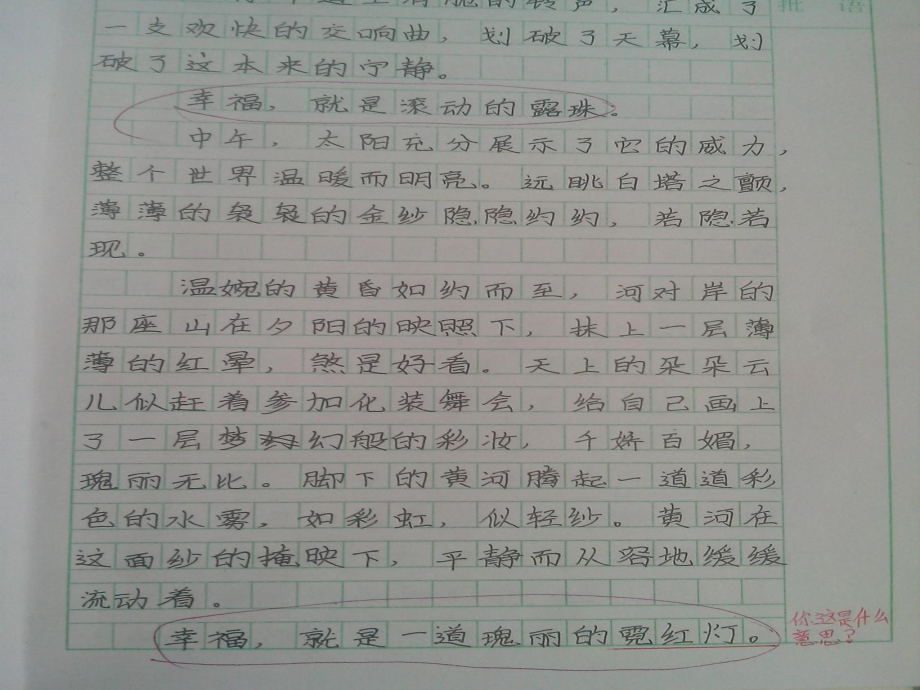 清脆的转声，汇成了
批语
一支欢快的交响曲，划破了天幕，划
破了这本来的宁静。
幸福，就是滚动的露珠。
中午，太阳充分展示了它的威力，
整个世界温暖而明亮。远眺白塔之颠，
薄薄的袅袅的金纱隐隐约约，若隐若
现。
温婉的黄昏如约而至，河对岸的
那座山在夕阳的映照下，抹上一层薄
薄的红晕，煞是好看。天上的朵朵云
儿似赶着参加化装舞会，给自己画上
了一层梦幻般的彩妆，千娇百媚，
瑰丽无比。脚下的黄河腾起一道道彩
色的水雾，如彩虹，似轻纱。黄河在
这面纱的掩映下，平静而从容地缓缓
流动着。
幸福，就是一道瑰丽的霓红灯。
你这是什么
意思？